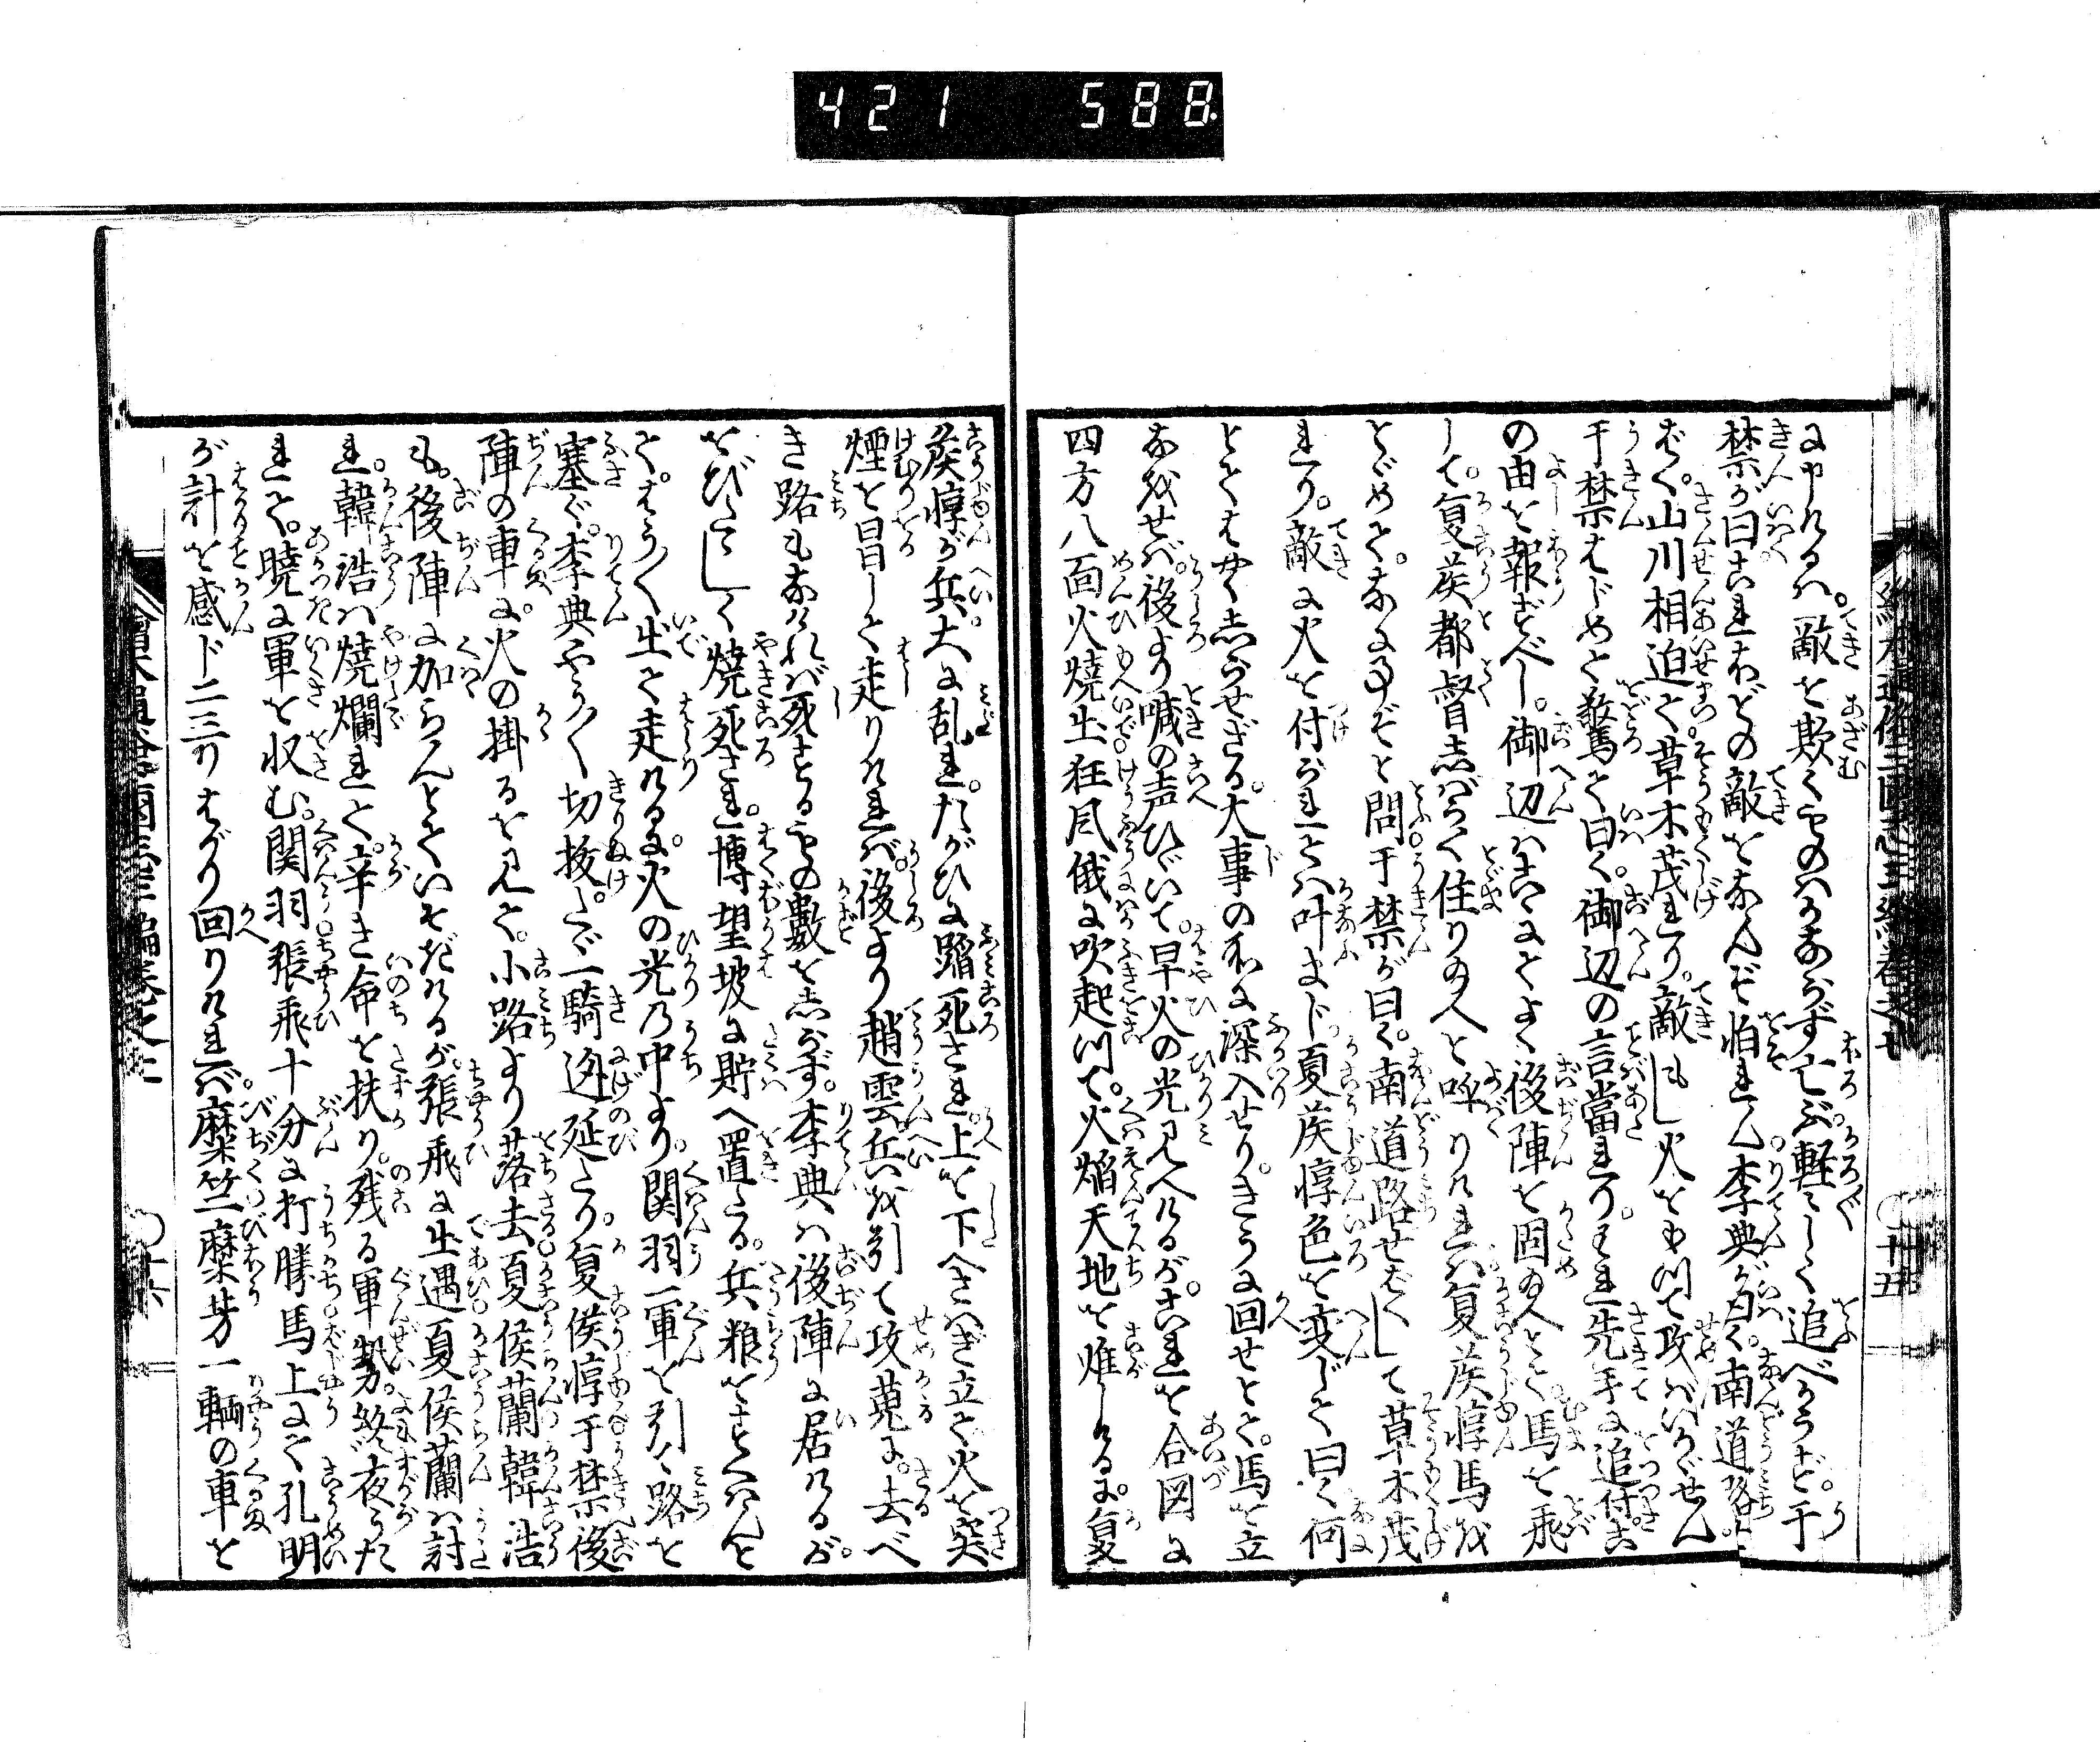 421 588
に申けるハ。敵を欺くものハかならず亡ぶ。軽々しく追べからず。于
禁が曰これほどの敵をなんぞ怕れん。李典が曰く。南道路せ
ばく。山川相迫て。草木茂れり。敵もし火をもつて攻バいかゞせん。
于禁はじめて驚て曰く。御辺の言當れり。われ先手に追付。こ
の由を報ずべし。御辺ハこゝにとよく後陣を固め給へとて。馬を飛
して。夏侯都督しバらく住り給へと呼りけれバ。夏侯惇馬を
とゞめて。なに事ぞと問。于禁が曰く。南道路せばくして草木茂
れり。敵に火を付られてハ叶まじ。夏侯惇色を変じて曰く何
とてはやく告しらせざる。大事の所に深入せり。きうに回せとて。馬を立
なをせバ。後より喊の声ひゞいて。早火の光見へけるが。これを合図に
四方八面火燒出。狂風俄に吹起つて。火焔天地を焦しけるに。夏
侯惇が兵大に乱れ。たがひに蹈死され。上を下へさハぎ立て火を突
煙を冒して走りけれバ。後より趙雲兵を引て攻蒐る。去べ
き路もなけれバ死するもの數をしらず。李典ハ後陣に居けるが。
をびたゝしく燒死され。博望坡に貯へ置たる。兵粮をすくハんと
て。はう〳〵出て走けるに。火の光の中より。関羽一軍を引て路を
塞ぐ。李典やう〳〵切抜。たゞ一騎迯延たり。夏侯惇于禁後
陣の車に。火の掛るを見て。小路より落去。夏侯蘭韓浩
も。後陣に加らんとていそぎけるが。張飛に出遇。夏侯蘭ハ討
れ。韓浩ハ燒爛れて。辛き命を扶り。残る軍勢。終夜うた
れて。暁に軍を収む。関羽張飛十分に打勝。馬上にて孔明
が計を感ド二三リばかり回りけれバ。糜竺糜芳一輌の車を